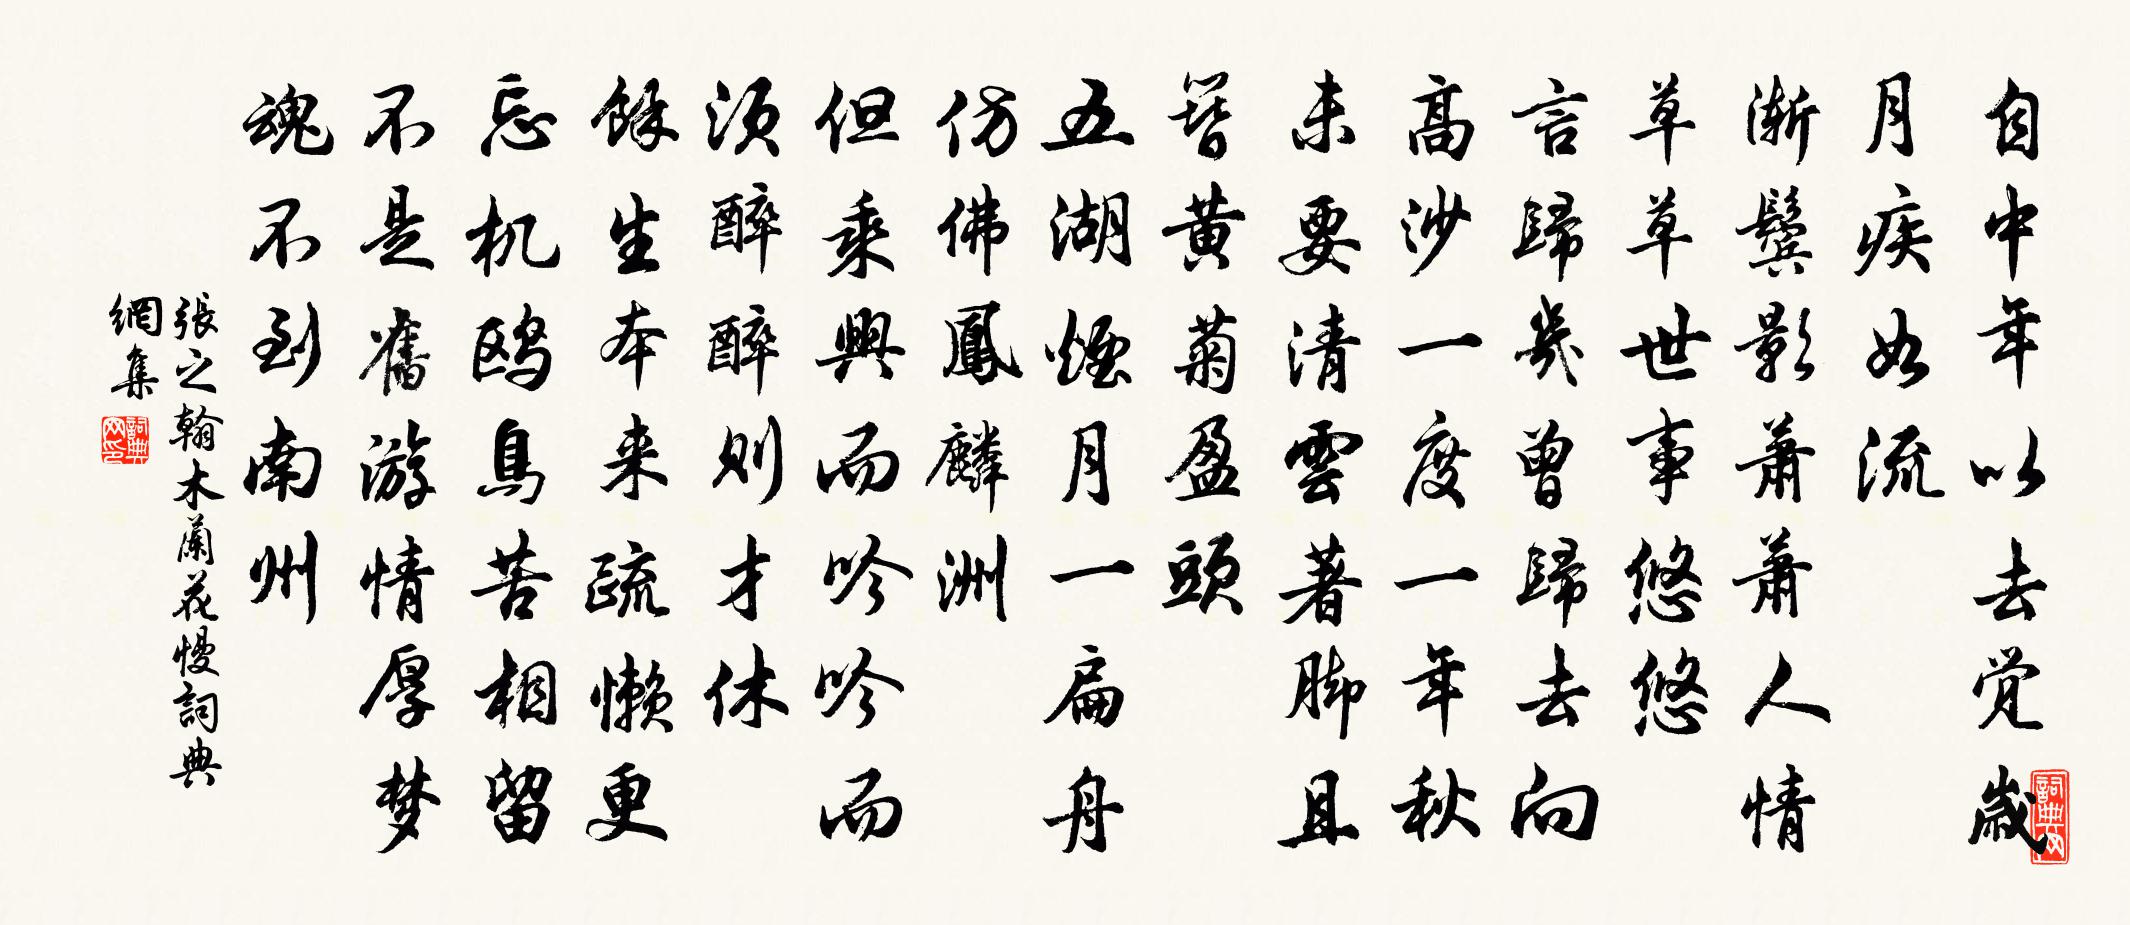 自中年以去觉歲
月疾如流
渐鬓影萧萧人情
草草世事悠悠
言歸幾曾歸去向
高沙一度一年秋
未要清雲著脚且
簪黄菊盈頭
五湖煙月一扁舟
仿佛鳳麟洲
但乘興而吟吟而
须醉醉则才休
餘生本来疏懒更
忘机鸥鳥苦相留
不是舊游情厚梦
魂不到南州
張之翰木蘭花慢詞典
網集
詞典网
詞典网印